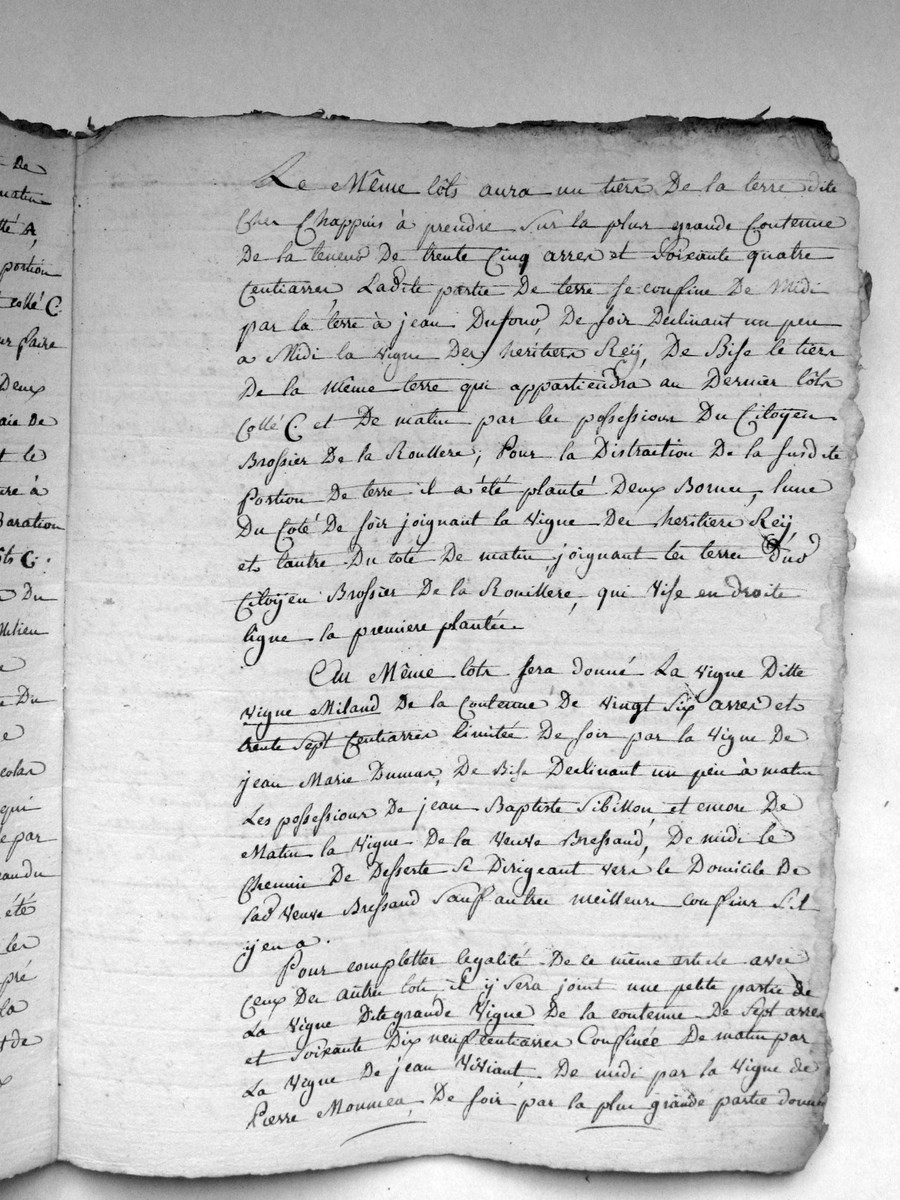 De
matin
A
portion
collé C.
faire
Deux
De
et le
à
paration
C.
Du
milieu
Du
qui
par
été
les
pré
La
de
Le Même lôts aura un tiers De la terre dite
Ches Chappuis à prendre Sur la plus grande Contenue
De la teneur De trente Cinq arres et Soixante quatre
Centiarres Ladite partie De terre se confine De Midi
par la terre à jean Dufour, De soir Declinant un peu
a Midi la vigne Des heritiers Reÿ, De Bise le tiers
De la Même terre qui appartiendra au Dernier lôts
Collé C. et De matin par les possessions Du Citoyen
Brossier De la Roullere; Pour la Distraction De la susdite
Portion De terre il a été planté Deux Bornes, lune
Du Coté De soir joignant la vigne Des heritiers Reÿ
et lautre Du coté De matin joignant les terres Du
Citoyen Brossier De la Rouillere, qui vise en droite
ligne la premiere plantée
Au Même lots sera donné La vigne Ditte
Vigne Miland De la Contenue De vingt Six arres et
trente Sept Centiarres limitée De soir par la vigne De
jean Marie Dumas, De Bise Declinant un peu à matin
Les possessions De jean Baptiste Sibillon, et encore De
Matin la vigne De la veuve Bressand, De midi le
Chemin De Desserte se Dirigeant vers le Domicile De
lad veuve Bressand Sauf autres meilleurs confins S.il
ÿ en a.
Pour completter legalité De ce même article avec
Ceux Des autres lots il ÿ sera joint une petite partie de
La vigne Dite grande vigne De la contenue De Sept arres
et soixante Dix neuf Centiarres Confinée De matin par
La vigne De jean Viviant De midi par la vigne de
Pierre De soir par la plus grande partie